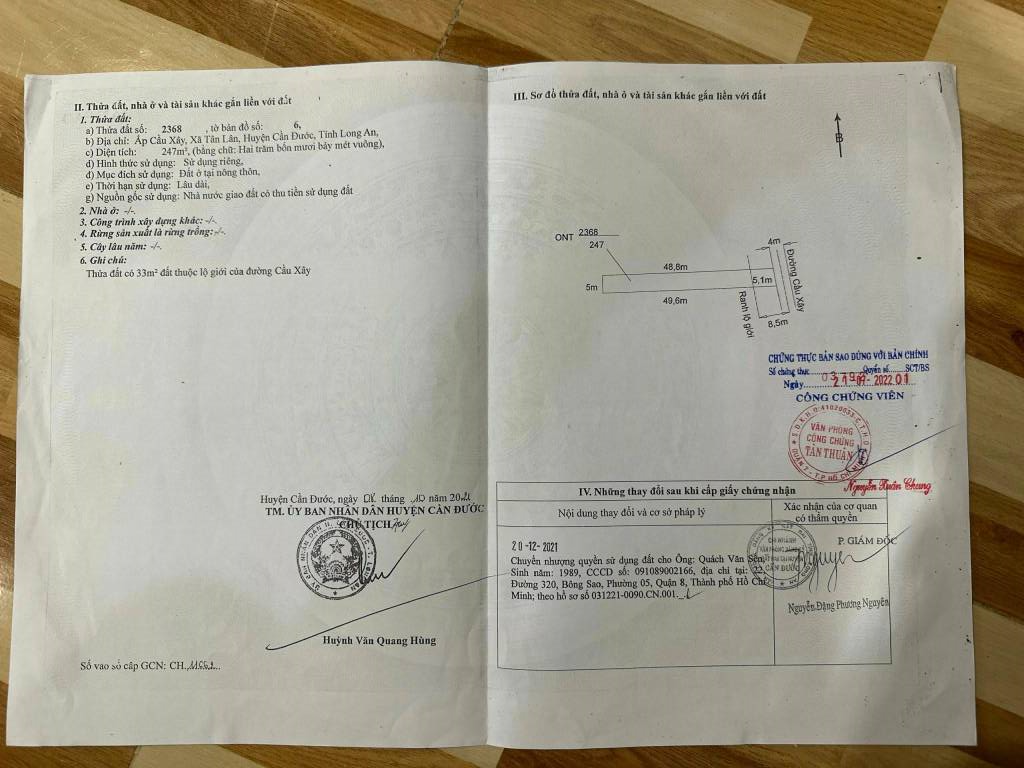 II. Thửa đất, nhà ở và tài sản khác gắn liền với đất
1. Thửa đất:
a) Thửa đất số: 2368 , tờ bản đồ số: 6,
b) Địa chỉ: Ấp Cầu Xây, Xã Tân Lân, Huyện Cần Đước, Tỉnh Long An,
c) Diện tích: 247m², (bằng chữ: Hai trăm bốn mươi bảy mét vuông),
d) Hình thức sử dụng: Sử dụng riêng,
đ) Mục đích sử dụng: Đất ở tại nông thôn,
e) Thời hạn sử dụng: Lâu dài,
g) Nguồn gốc sử dụng: Nhà nước giao đất có thu tiền sử dụng đất
2. Nhà ở: -/-.
3. Công trình xây dựng khác: -/-.
4. Rừng sản xuất là rừng trồng: -/-.
5. Cây lâu năm: -/-.
6. Ghi chú:
Thửa đất có 33m² đất thuộc lộ giới của đường Cầu Xây
Huyện Cần Đước, ngày tháng năm 2021
TM. ỦY BAN NHÂN DÂN HUYỆN CẦN ĐƯỚC
CHỦ TỊCH
Huỳnh Văn Quang Hùng
Số vào sổ cấp GCN: CH
III. Sơ đồ thửa đất, nhà ở và tài sản khác gắn liền với đất
B
ONT 2368
247
4m
48,8m
5m
5,1m
49,6m
8,5m
Ranh lộ giới
Đường Cầu Xây
CHỨNG THỰC BẢN SAO ĐÚNG VỚI BẢN CHÍNH
Số chứng thực Quyển số SCT/BS
Ngày 21-09-2022 01
CÔNG CHỨNG VIÊN
VĂN PHÒNG
CÔNG CHỨNG
TÂN THUẬN
QUẬN 7 - T.P HỒ CHÍ MINH
Nguyễn Xuân Chung
IV. Những thay đổi sau khi cấp giấy chứng nhận
Nội dung thay đổi và cơ sở pháp lý
Xác nhận của cơ quan
có thẩm quyền
20-12-2021
Chuyển nhượng quyền sử dụng đất cho Ông: Quách Văn Sến,
Sinh năm: 1989, CCCD số: 091089002166, địa chỉ tại: 22
Đường 320, Bông Sao, Phường 05, Quận 8, Thành phố Hồ Chí
Minh; theo hồ sơ số 031221-0090.CN.001.
P. GIÁM ĐỐC
CẦN ĐƯỚC
Nguyễn Đặng Phương Nguyên